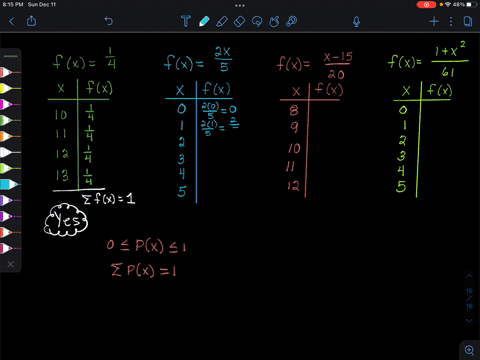 8:15 PM Sun Dec 11
48%
f(x) = 1/4
x f(x)
10 1/4
11 1/4
12 1/4
13 1/4
Σ f(x) = 1
Yes
f(x) = 2x/5
x f(x)
0 2(0)/5 = 0
1 2(1)/5 = 2
2
3
4
5
f(x) = x-15/20
x f(x)
8
9
10
11
12
f(x) = 1+x²/61
x f(x)
0
1
2
3
4
5
0 ≤ P(x) ≤ 1
Σ P(x) = 1